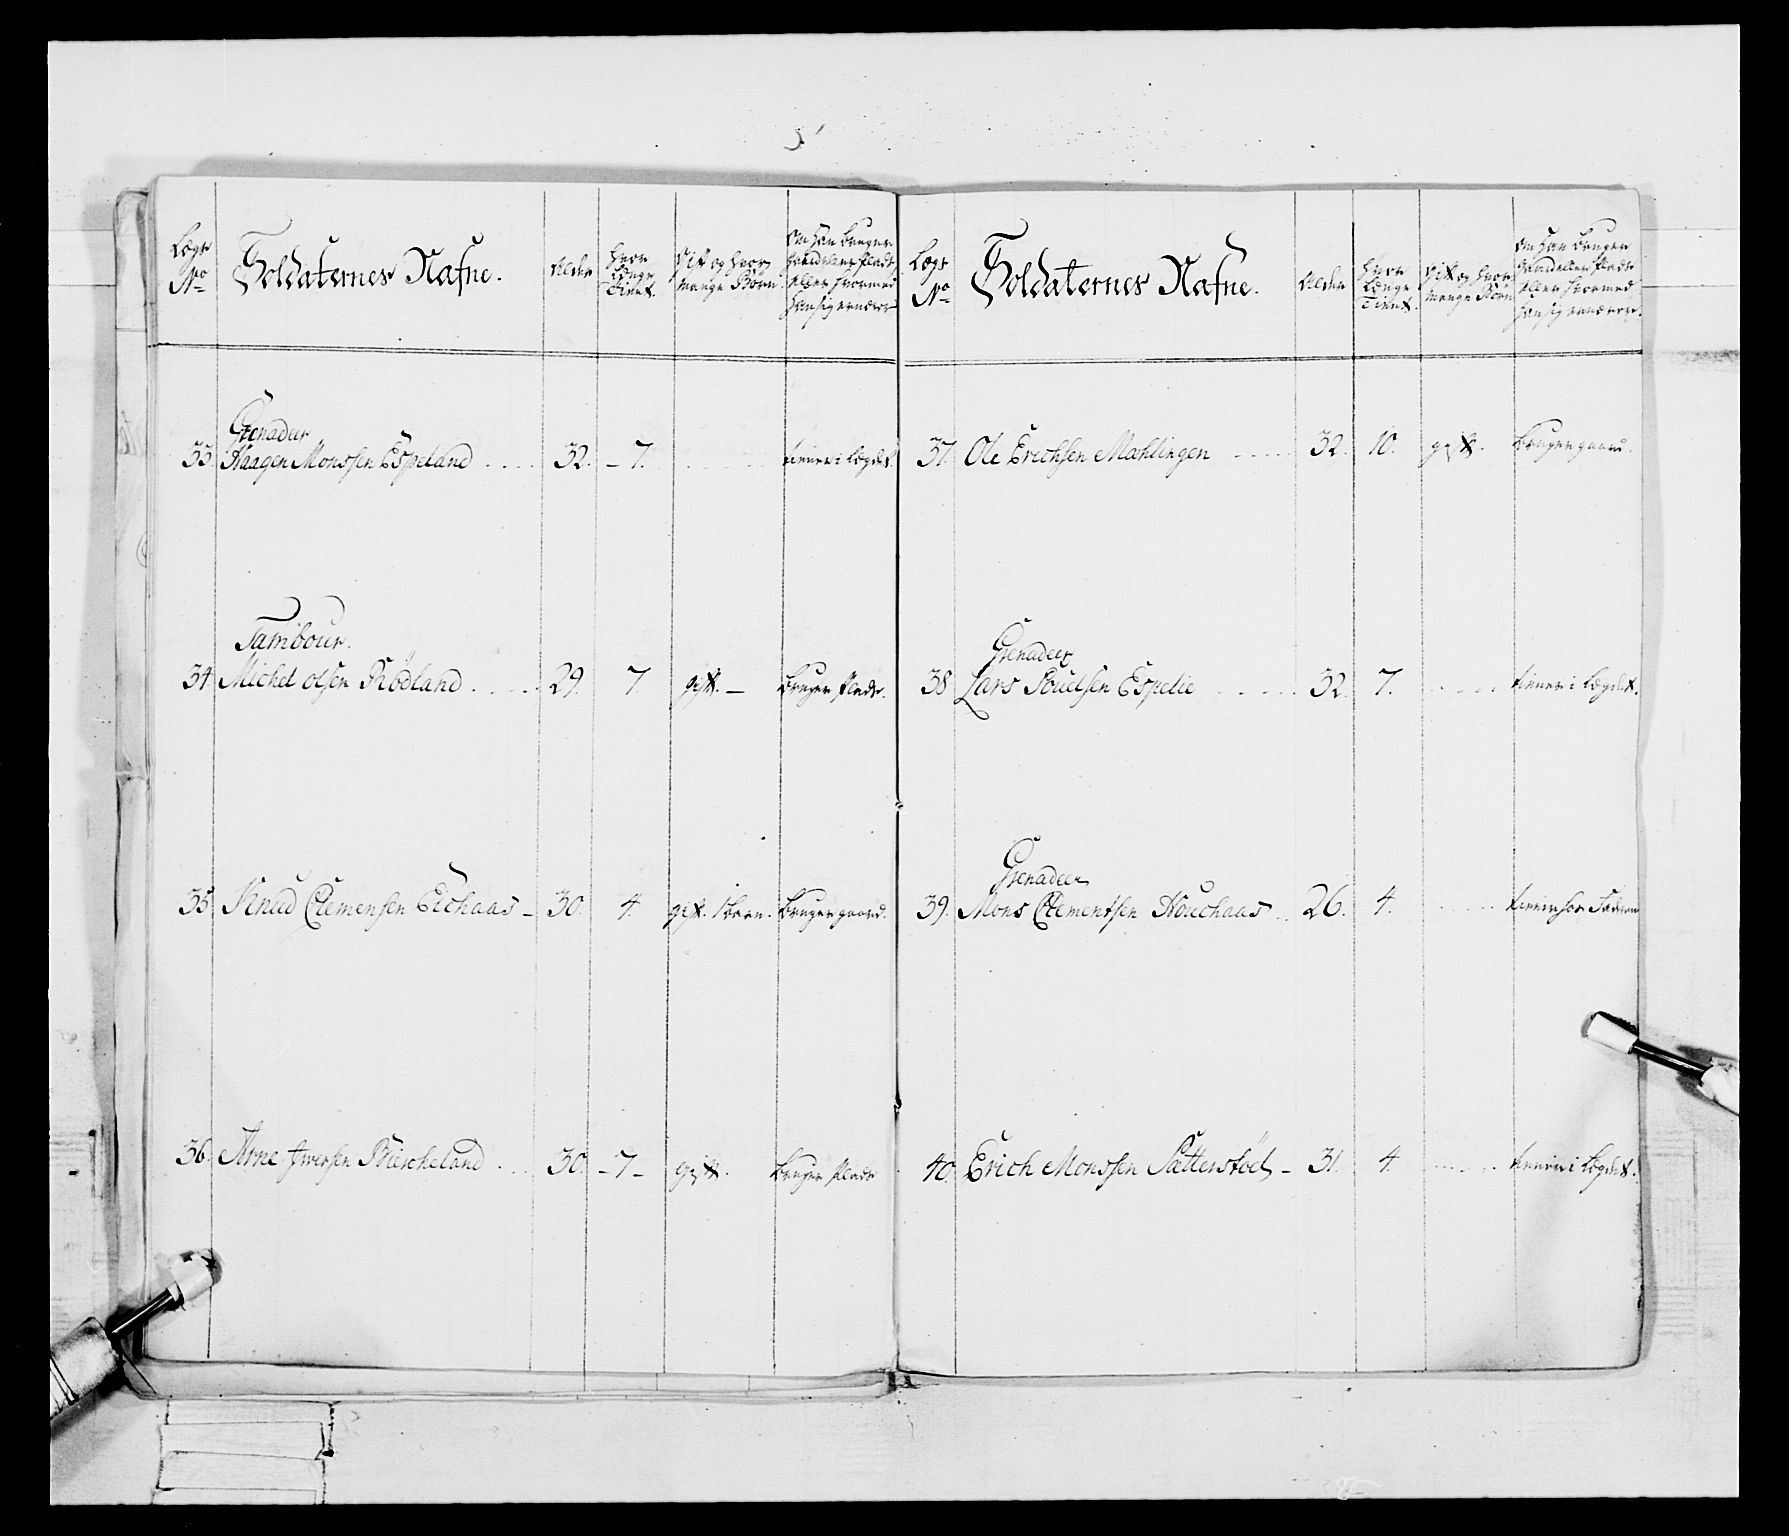 Lægs No | Soldaternes Nafne. | Alder | hvor længe Tient. | Gift og hvor mange Børn | Om han bruger gaard eller Plads eller hvormed han sig ernærer
Grenadeer
33. Haagen Monssen Espeland . . . . 32. – 7. . . . . tiener i Lægdet.
Tambour.
34 Michel olsen Rødland . . . . . 29. 7. gift. – bruger Plads.
35 Knud Clemensen Echaas – 30. 4. gift. 1 barn. bruger gaard.
36. Arne Iwersen Biercheland . . . 30. – 7 – gift. bruger Plads
Lægs No | Soldaternes Nafne. | Alder | hvor Længe Tient. | Gift og hvor mange Børn | Om han bruger gaard eller Plads eller hvormed han sig ernærer.
37. Ole Erichsen Mæhlingen . . . . 32. 10. gift. bruger gaard.
Grenadeer
38 Lars Poulsen Espelie . . . . . 32. 7. . . . . tiener i Lægdet.
Grenadeer
39. Mons Clementsen Houchaas . . 26. 4. . . . . tiener hos Faderen
40. Erich Monssen Sætterstøel – 31. 4 . . . . tiener i Lægdet.